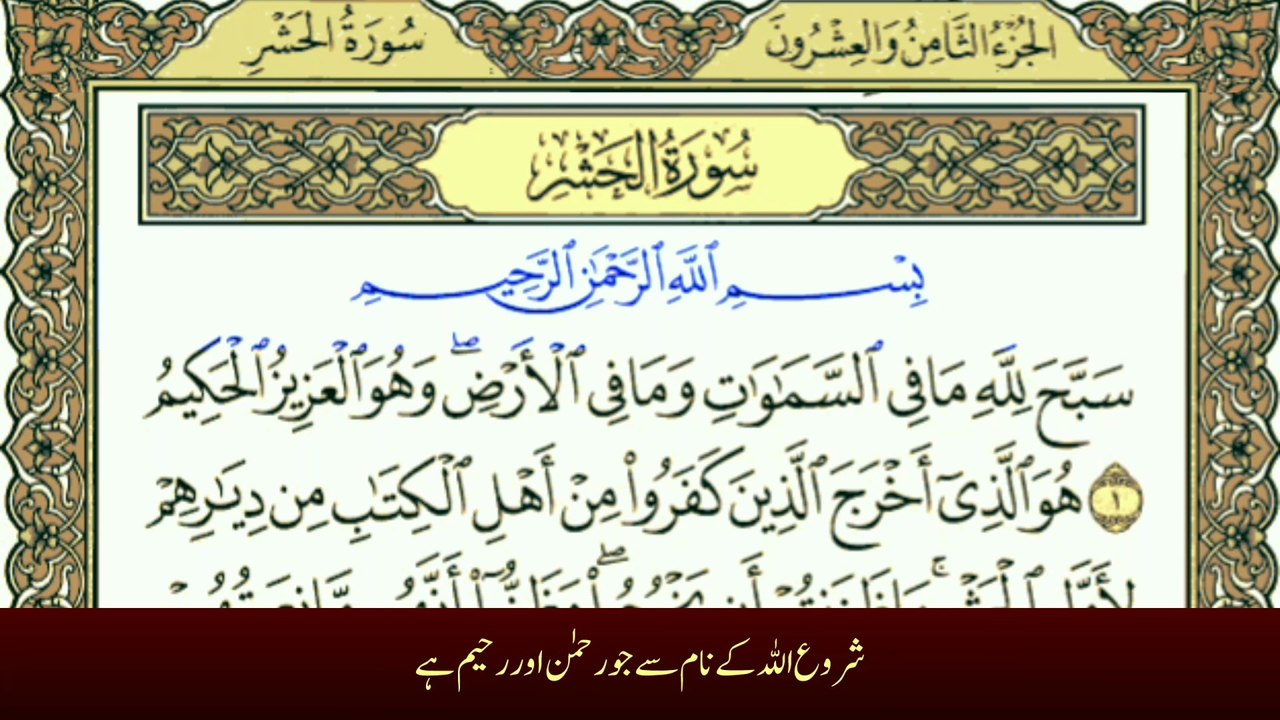 الجُزْءُ الثَّامِنُ وَالعِشْرُونَ سُورَةُ الحَشْرِ
سُورَةُ الحَشْرِ
بِسْمِ ٱللَّهِ ٱلرَّحْمَٰنِ ٱلرَّحِيمِ
سَبَّحَ لِلَّهِ مَا فِي ٱلسَّمَٰوَٰتِ وَمَا فِي ٱلْأَرْضِۖ وَهُوَ ٱلْعَزِيزُ ٱلْحَكِيمُ
١ هُوَ ٱلَّذِيٓ أَخْرَجَ ٱلَّذِينَ كَفَرُوا۟ مِنْ أَهْلِ ٱلْكِتَٰبِ مِن دِيَٰرِهِمْ
شروع اللہ کے نام سے جو رحمٰن اور رحیم ہے